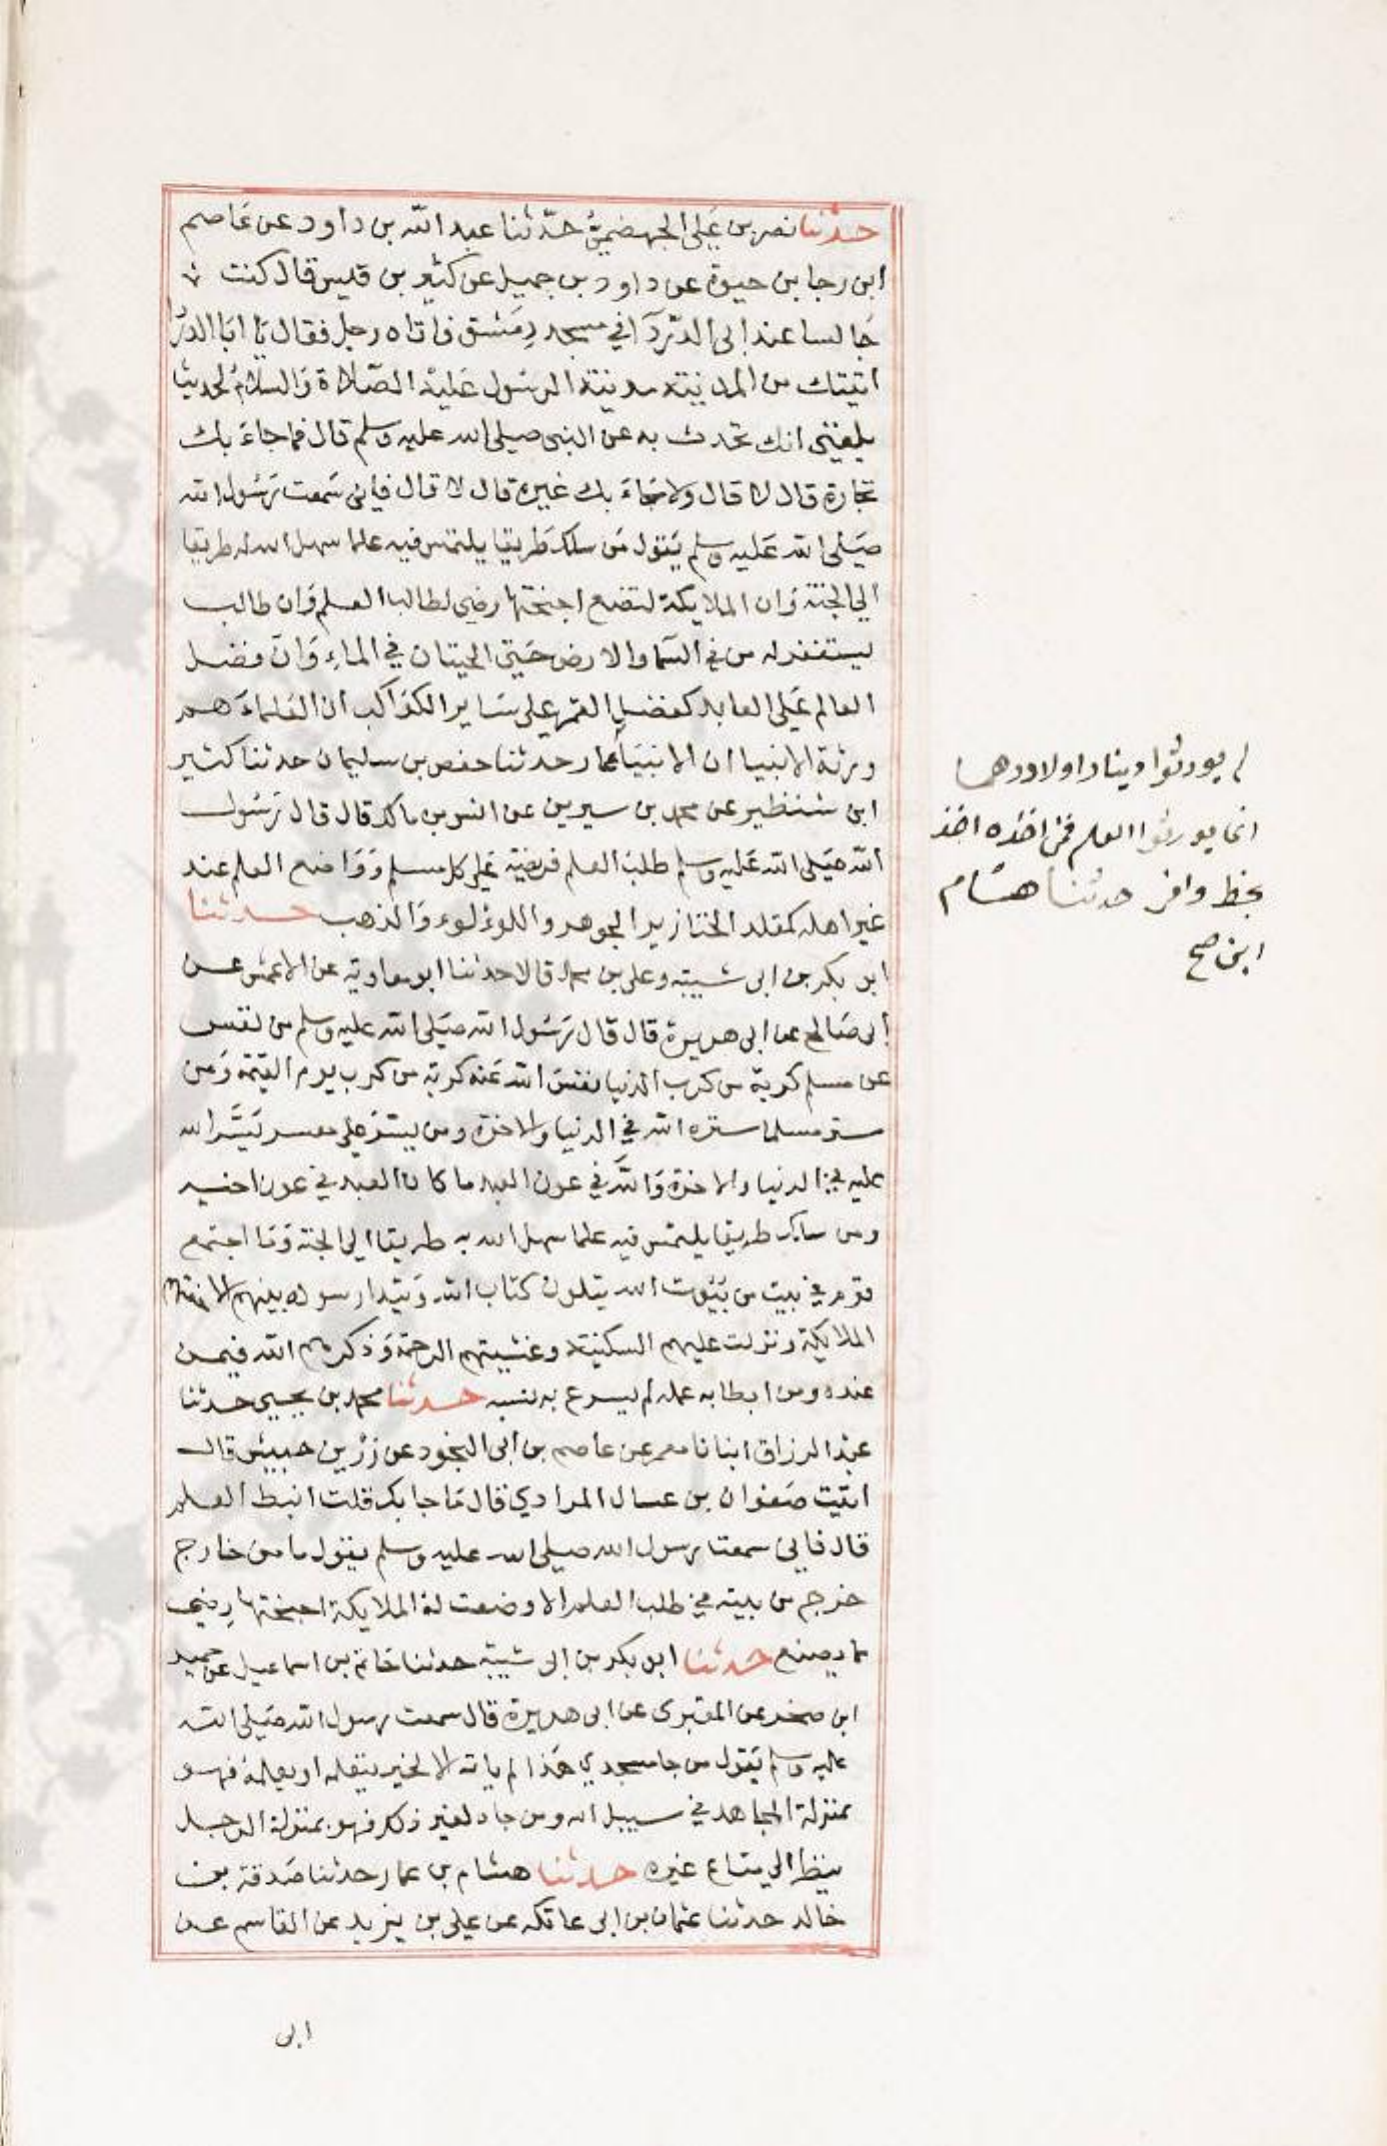 حدثنا نصر بن عَلى الجهضميُّ حدّثنا عبد الله بن داود عن عَاصم
ابن رجا بن حيوة عن داود بن جميل عن كثير بن قيس قال كنت
جَالسا عند ابى الدّردآ في مسجد دِمَشق فاتاه رجل فقال يَا ابَا الدردَا
اتيتك من المدينة مدينة الرسُول عَليْه الصّلاة وَالسلامُ لحديث
بلغني انك تحدث به عن النبى صلى الله عليه وسلم قال فما جاءَ بك
تجارة قال لا قال ولا جَاءَ بك غيره قال لا قال فإنى سَمعت رَسُول الله
صَلى الله عَليه وسلم يَقول مَن سلك طَريقا يلتمس فيه علما سهل الله له طريقا
الى الجنة وَان الملايكة لتضع اجنحتها رضى لطالب العلم وَان طالب
ليستغفر له من في السّما والارض حَتى الحيتان في الماءِ وَانّ فضل
العالم عَلى العابد كفضل القمر على سَاير الكوَاكب ان العُلماءَ هم
ورثة الانبيا ان الانبيَا عمار حدثنا حفص بن سليمان حدثنا كثير
ابن شنظير عن محمد بن سيرين عن انس بن مالك قال قال رَسُول
الله صَلى الله عَليه وسلم طلبُ العلم فريضة عَلى كل مسلم وَوَاضع العلم عند
غير اهله كمقلد الخنازير الجوهر واللؤلوء وَالذهب حدثنا
ابو بكر بن ابى شيبة وعلى بن محمد قالا حدثنا ابو معاوية عن الاعمش عن
ابى صَالح عن ابى هريرة قال قال رَسُول الله صَلى الله عليه وسلم من نفس
عن مسلم كربة من كرب الدنيا نفسَ الله عَنه كربة من كرب يوم القيمة وَمن
ستر مسلما ستره الله في الدنيا والاخرة ومن يسّر على معسر يَسَّر الله
عليه في الدنيا والاخرة وَاللهُ في عون العبد ما كان العبد في عون اخيه
ومن سلك طريقا يلتمس فيه علما سهل الله به طريقا الى الجنة وَمَا اجتمع
قوم في بيت من بُيُوت الله يتلون كتاب الله وَيتدارسونه بينهم الا حفتهم
الملايكة ونزلت عليهم السكينة وغشيتهم الرحمة وَذكرهم الله فيمن
عنده ومن ابطا به عمله لم يسرع به نسبه حدثنا محمد بن يحيى حدثنا
عبْد الرزاق انبانا معمر عن عاصم بن ابى النجود عن زرّ بن حبيش قال
اتيت صَفوان بن عسال المرادي قال مَا جا بك قلت انبط العلم
قال فانى سمعت رسول الله صلى الله عليه وسلم يقول ما من خارج
خرج من بيته في طلب العلم الا وضعت لهُ الملايكة اجنحتها رِضى
بما يصنع حدثنا ابو بكر بن ابى شيبة حدثنا حَاتم بن اسماعيل عن حميد
ابن صخر عن المقبرى عن ابى هريرة قال سمعت رسول الله صَلى الله
عليه وسلم يَقول من جا مسجدي هَذا لم ياته الا لخير يتعلمه او يعلمهُ فهو
بمنزلة المجاهد في سبيل الله ومن جاء لغير ذلك فهو بمنزلة الرجل
ينظر الى متاع غيره حدثنا هشام بن عمار حدثنا صَدقة بن
خالد حدثنا عثمان بن ابى عاتكه عن على بن يزيد عن القاسم عن
ابى
لم يورثوا دينارا ولا درهما
انما يورثوا العلم فمَن اخذه اخذ
بحظ وافر حدثنا هشام
ابن صح